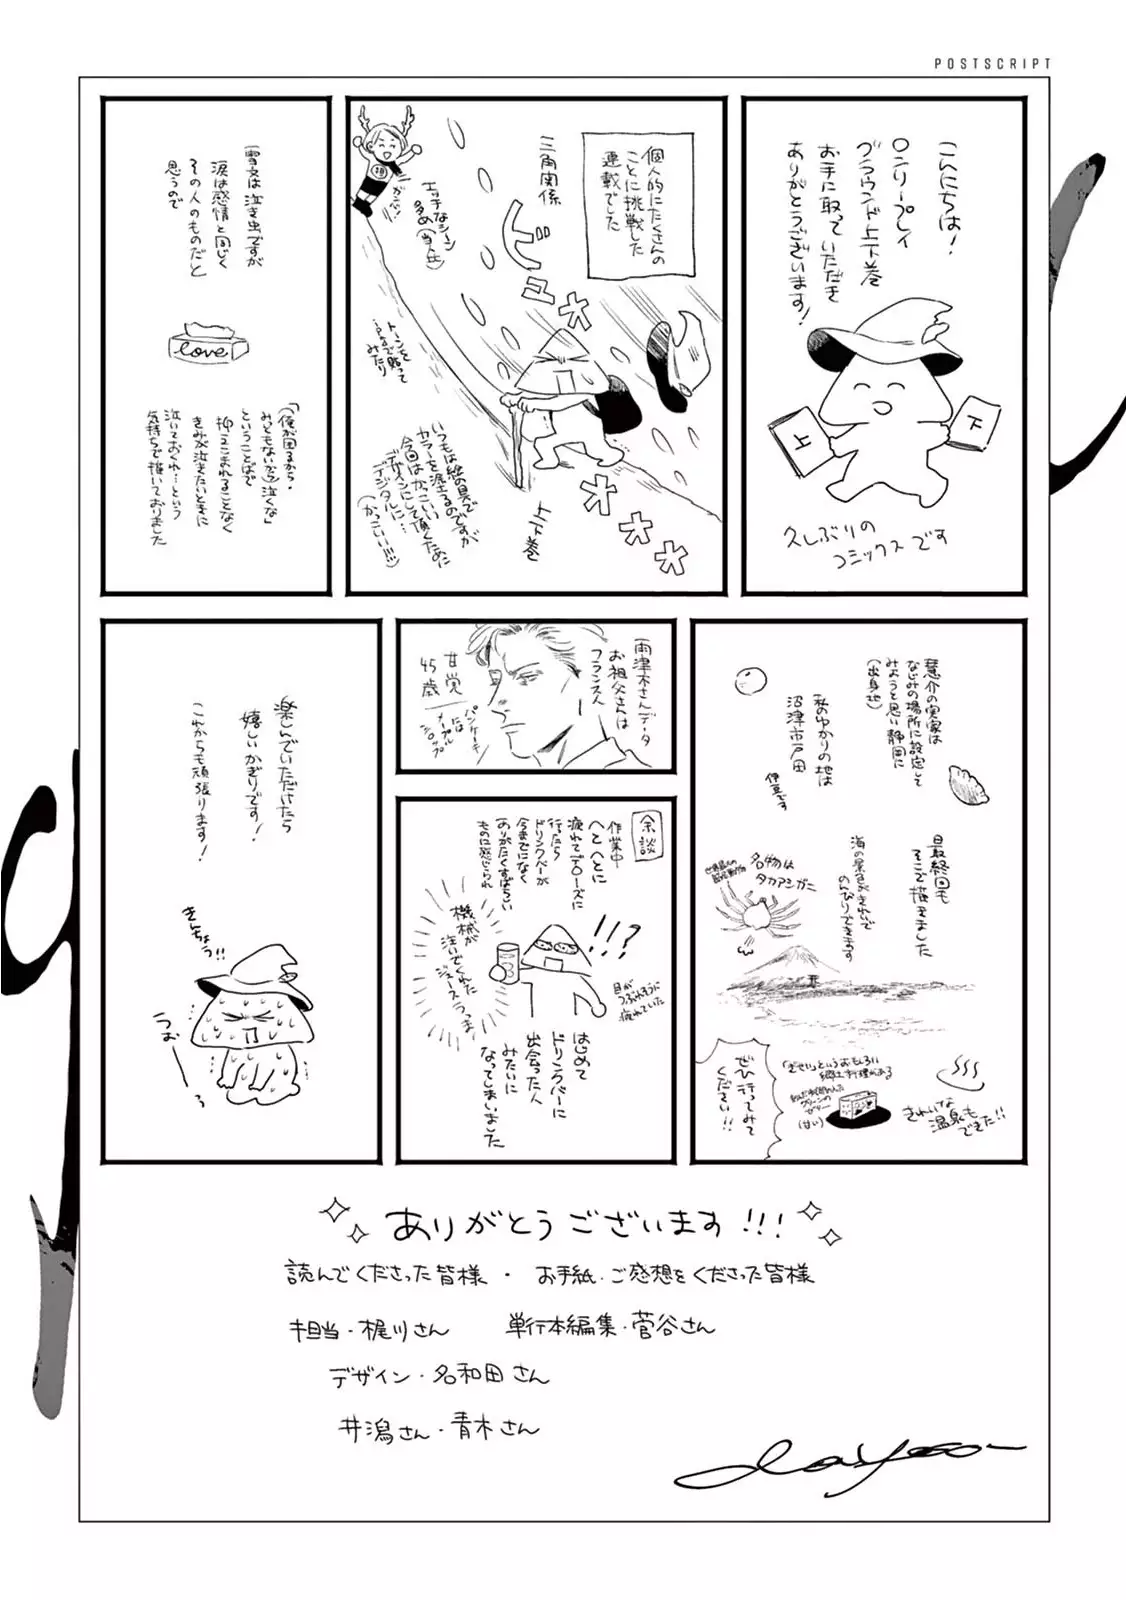 POSTSCRIPT
こんにちは!
ロンリープレイ
グラウンド上下巻
お手に取っていただき
ありがとうございます!
上
下
久しぶりの
コミックスです
個人的にたくさんの
ことに挑戦した
連載でした
三角関係
エッチなシーン
多め(当社比)
ガンバレ!
担
ビュオオ
オオオオ
トーンを
iPadで貼って
みたり
いつもは絵の具で
カラーを塗るのですが
今回はかっこいい
デザインにして頂くために
デジタルに…
(かっこいい!!!)
上下巻
(雪文は泣き虫ですが
涙は感情と同じく
その人のものだと
思うので
love
「(俺が困るから・
みっともないから)泣くな」
ということばで
抑えこまれることなく
きみが泣きたいときに
泣いておくれ…という
気持ちで描いておりました
慧介の実家は
なじみの場所に設定して
みようと思い静岡に
(出身地)
私のゆかりの地は
沼津市戸田
伊豆です
最終回も
そこで描きました
海の景色がきれいで
のんびりできます
名物は
タカアシガニ
世界最大の
きれいな
温泉も
できた!!
「ぎせい」というおもしろい
郷土料理がある
(甘い)
ぜひ行ってみて
ください!!
雨津木さんデータ
お祖父さんは
フランス人
甘党
45歳
パンケーキ
には
メープル
シロップ
余談
作業中
へとへとに
疲れてデ〇ーズに
行ったら
ドリンクバーが
今までになく
ありがたくすばらしい
ものに感じられ
!!?
機械が
注いでくれた
ジュースうっま
目が
つぶれそうに
疲れていた
はじめて
ドリンクバーに
出会った人
みたいに
なってしまいました
楽しんでいただけたら
嬉しいかぎりです!
これからも頑張ります!
きんちょう!!
ありがとうございます!!!
読んでくださった皆様・お手紙・ご感想をくださった皆様
担当・梶川さん 単行本編集・菅谷さん
デザイン・名和田さん
井潟さん・青木さん